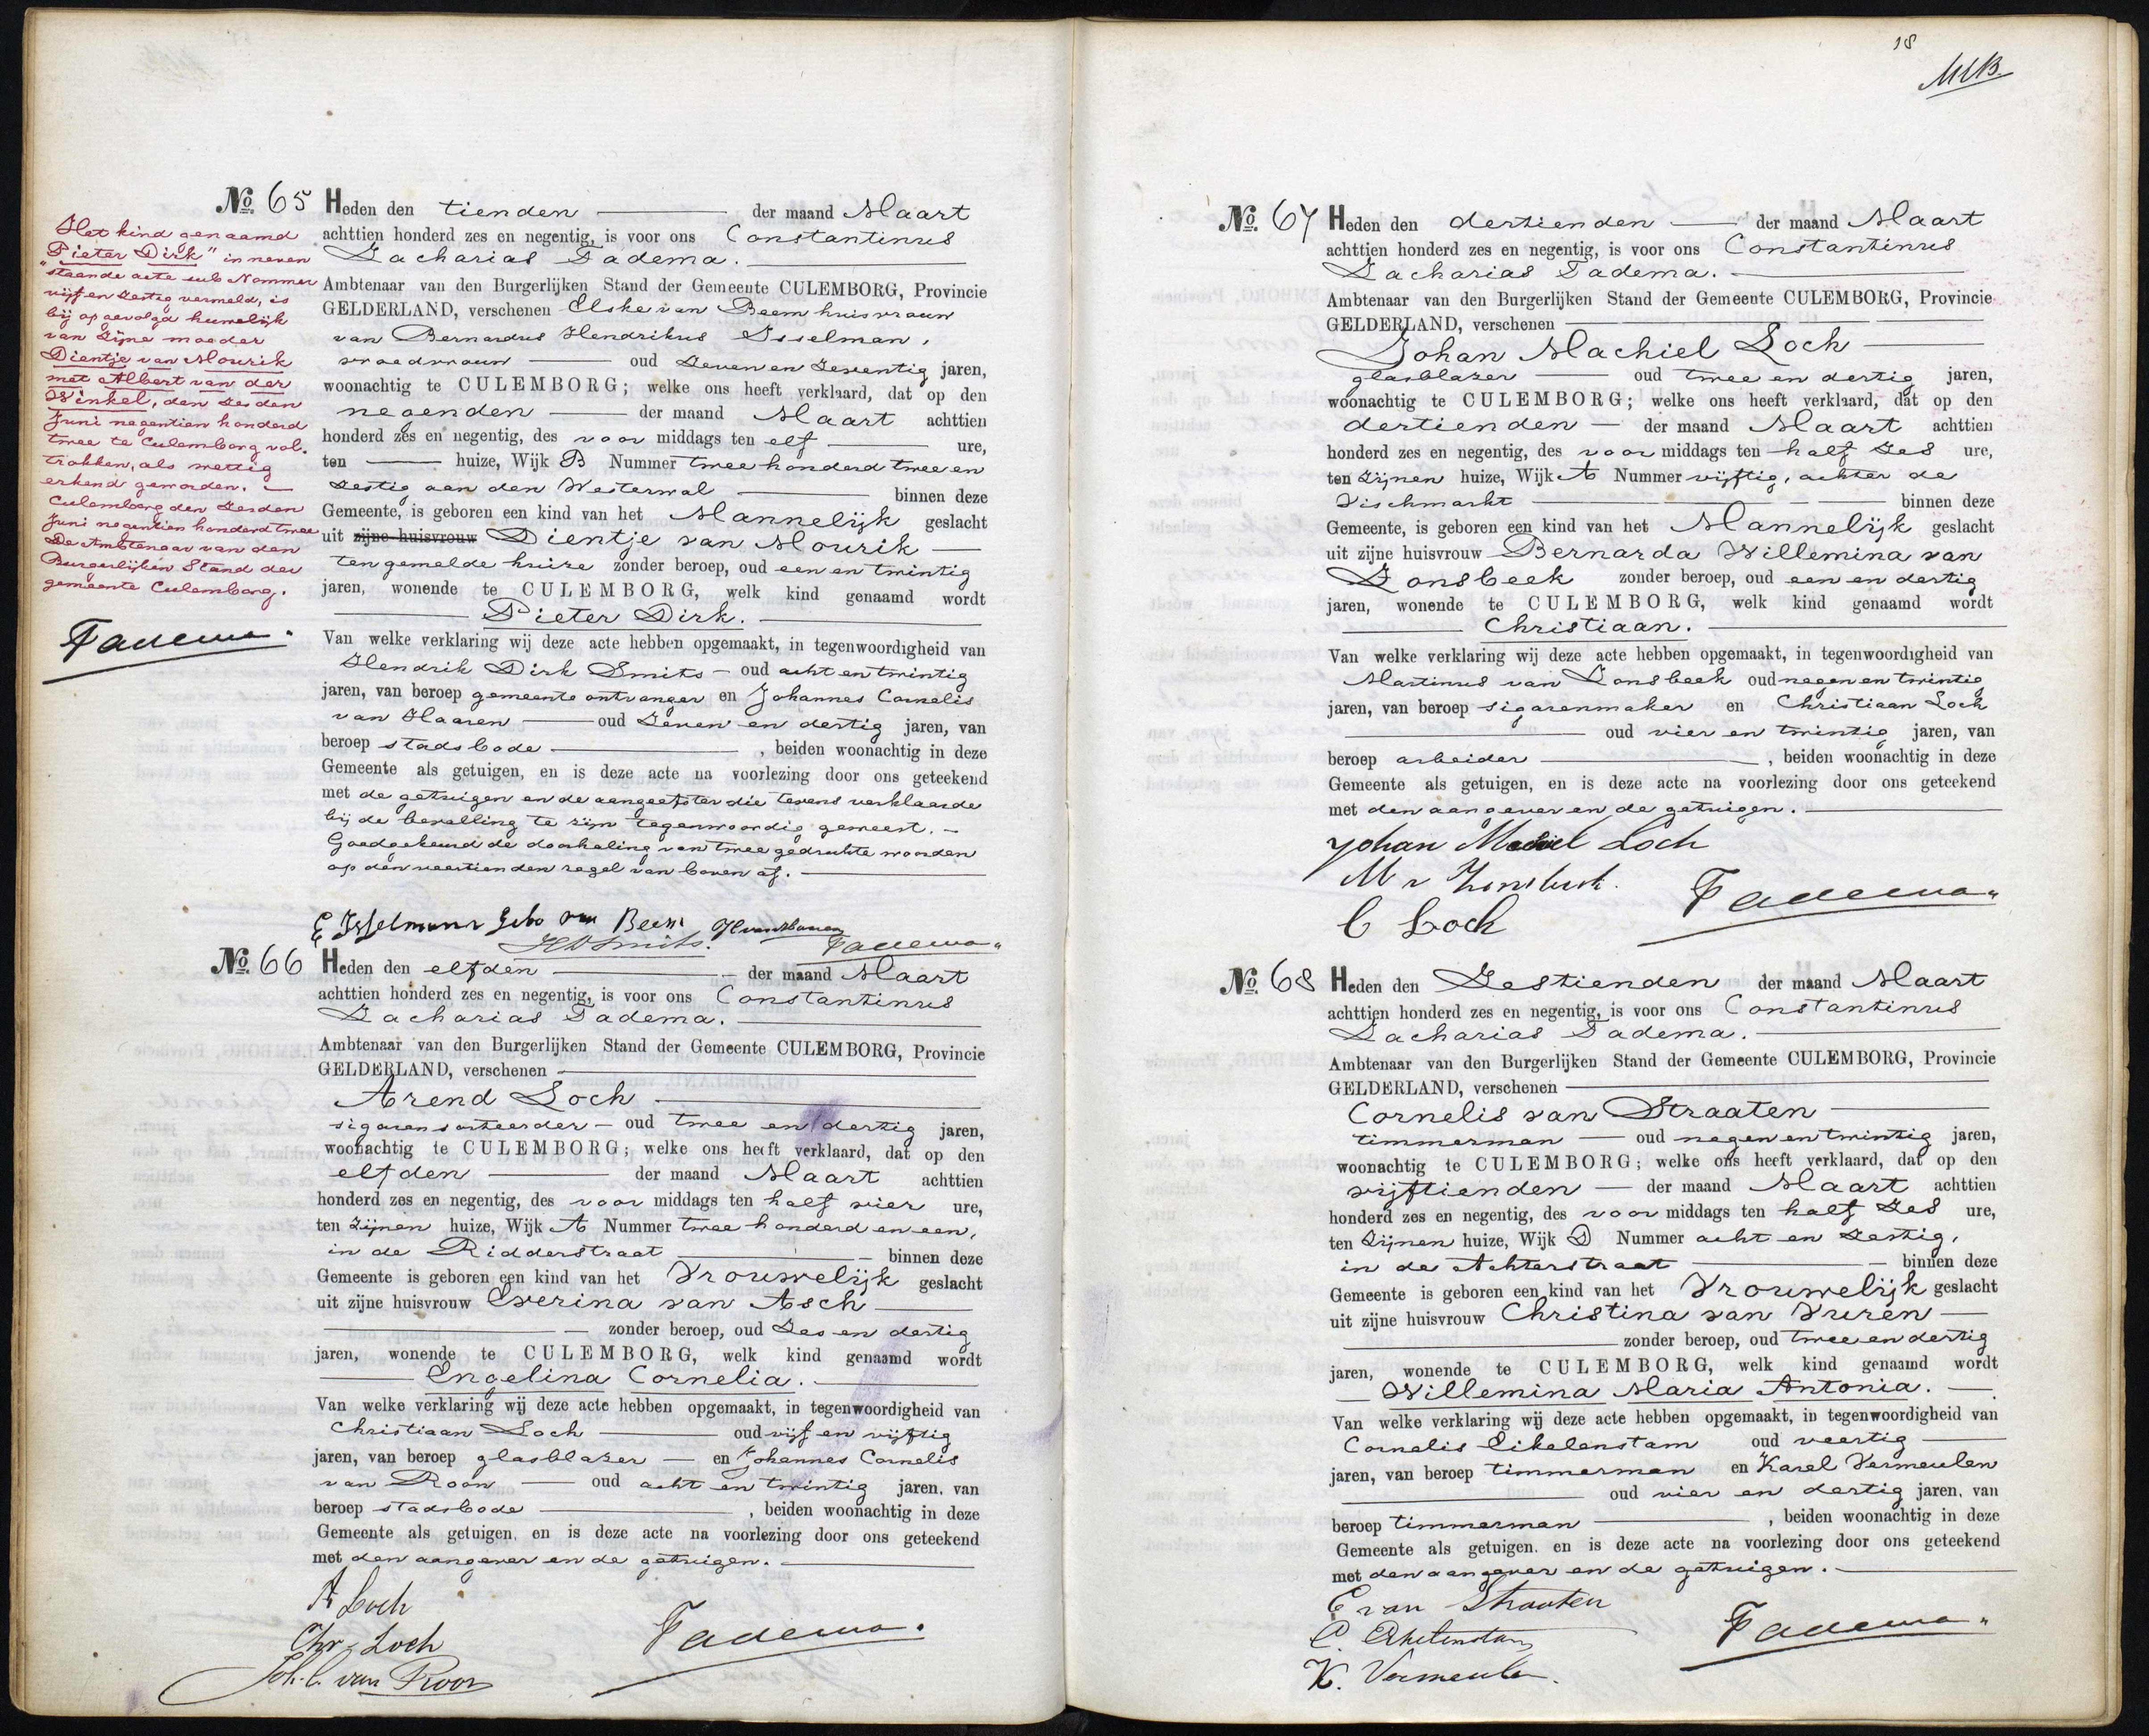 No. 65 Heden den tienden der maand Maart
achttien honderd zes en negentig, is voor ons Constantinus
Zacharias Tadema.
Ambtenaar van den Burgerlijken Stand der Gemeente CULEMBORG, Provincie
GELDERLAND, verschenen Elske van Beem huisvrouw
van Bernardus Hendrikus IJsselman,
vroedvrouw oud zeven en zeventig jaren,
woonachtig te CULEMBORG; welke ons heeft verklaard, dat op den
negenden der maand Maart achttien
honderd zes en negentig, des voor middags ten elf ure,
ten huize, Wijk B Nummer twee honderd twee en
zestig aan den Westerwal binnen deze
Gemeente, is geboren een kind van het Mannelijk geslacht
uit zijne huisvrouw Dientje van Mourik
ten gemelde huize zonder beroep, oud een en twintig
jaren, wonende te CULEMBORG, welk kind genaamd wordt
Pieter Dirk.
Van welke verklaring wij deze acte hebben opgemaakt, in tegenwoordigheid van
Hendrik Dirk Smits oud acht en twintig
jaren, van beroep gemeente ontvanger en Johannes Cornelis
van Haaren oud zeven en dertig jaren, van
beroep stadsbode, beiden woonachtig in deze
Gemeente als getuigen, en is deze acte na voorlezing door ons geteekend
met de getuigen en de aangeefster die tevens verklaarde
bij de bevalling te zijn tegenwoordig geweest.
Goedgekeurd de doorhaling van twee gedrukte woorden
op den veertienden regel van boven af.
E IJsselmann Geb van Beem
HDSmits. Tadema
Het kind genaamd
"Pieter Dirk" in neven
staande acte sub Nommer
vijf en zestig vermeld, is
bij opgevolgd huwelijk
van zijne moeder
Dientje van Mourik
met Albert van der
Winkel, den zesden
Juni negentien honderd
twee te Culemborg vol.
trokken, als wettig
erkend geworden.
Culemborg den zesden
Juni negentien honderd twee
De Ambtenaar van den
Burgerlijken Stand der
gemeente Culemborg.
Tadema.
No. 66 Heden den elfden der maand Maart
achttien honderd zes en negentig, is voor ons Constantinus
Zacharias Tadema.
Ambtenaar van den Burgerlijken Stand der Gemeente CULEMBORG, Provincie
GELDERLAND, verschenen
Arend Loch
sigarensorteerder oud twee en dertig jaren,
woonachtig te CULEMBORG; welke ons heeft verklaard, dat op den
elfden der maand Maart achttien
honderd zes en negentig, des voor middags ten half vier ure,
ten zijnen huize, Wijk A Nummer twee honderd en een,
in de Ridderstraat binnen deze
Gemeente is geboren een kind van het Vrouwelijk geslacht
uit zijne huisvrouw Everina van Asch
zonder beroep, oud zes en dertig
jaren, wonende te CULEMBORG, welk kind genaamd wordt
Engelina Cornelia.
Van welke verklaring wij deze acte hebben opgemaakt, in tegenwoordigheid van
Christiaan Loch oud vijf en vijftig
jaren, van beroep glasblazer en Johannes Cornelis
van Roon oud acht en twintig jaren, van
beroep stadsbode, beiden woonachtig in deze
Gemeente als getuigen, en is deze acte na voorlezing door ons geteekend
met den aangever en de getuigen.
A Loch
Chr. Loch Tadema.
Joh. C. van Roon
18
No. 67 Heden den dertienden der maand Maart
achttien honderd zes en negentig, is voor ons Constantinus
Zacharias Tadema.
Ambtenaar van den Burgerlijken Stand der Gemeente CULEMBORG, Provincie
GELDERLAND, verschenen
Johan Machiel Loch
glasblazer oud twee en dertig jaren,
woonachtig te CULEMBORG; welke ons heeft verklaard, dat op den
dertienden der maand Maart achttien
honderd zes en negentig, des voor middags ten half zes ure,
ten zijnen huize, Wijk A Nummer vijftig, achter de
Vischmarkt binnen deze
Gemeente, is geboren een kind van het Mannelijk geslacht
uit zijne huisvrouw Bernarda Willemina van
Zonsbeek zonder beroep, oud een en dertig
jaren, wonende te CULEMBORG, welk kind genaamd wordt
Christiaan.
Van welke verklaring wij deze acte hebben opgemaakt, in tegenwoordigheid van
Martinus van Zonsbeek oud negen en twintig
jaren, van beroep sigarenmaker en Christiaan Loch
oud vier en twintig jaren, van
beroep arbeider, beiden woonachtig in deze
Gemeente als getuigen, en is deze acte na voorlezing door ons geteekend
met den aangever en de getuigen.
Johan Machiel Loch
M v Zonsbeek. Tadema
C Loch
No. 68 Heden den Zestienden der maand Maart
achttien honderd zes en negentig, is voor ons Constantinus
Zacharias Tadema.
Ambtenaar van den Burgerlijken Stand der Gemeente CULEMBORG, Provincie
GELDERLAND, verschenen
Cornelis van Straaten
timmerman oud negen en twintig jaren,
woonachtig te CULEMBORG; welke ons heeft verklaard, dat op den
vijftienden der maand Maart achttien
honderd zes en negentig, des voor middags ten half zes ure,
ten zijnen huize, Wijk D Nummer acht en zestig,
in de Achterstraat binnen deze
Gemeente is geboren een kind van het Vrouwelijk geslacht
uit zijne huisvrouw Christina van Vuren
zonder beroep, oud twee en dertig
jaren, wonende te CULEMBORG, welk kind genaamd wordt
Willemina Maria Antonia.
Van welke verklaring wij deze acte hebben opgemaakt, in tegenwoordigheid van
Cornelis Eikelenstam oud veertig
jaren, van beroep timmerman en Karel Vermeulen
oud vier en dertig jaren, van
beroep timmerman, beiden woonachtig in deze
Gemeente als getuigen, en is deze acte na voorlezing door ons geteekend
met den aangever en de getuigen.
C van Straaten
C. Eikelenstam Tadema
K. Vermeulen.